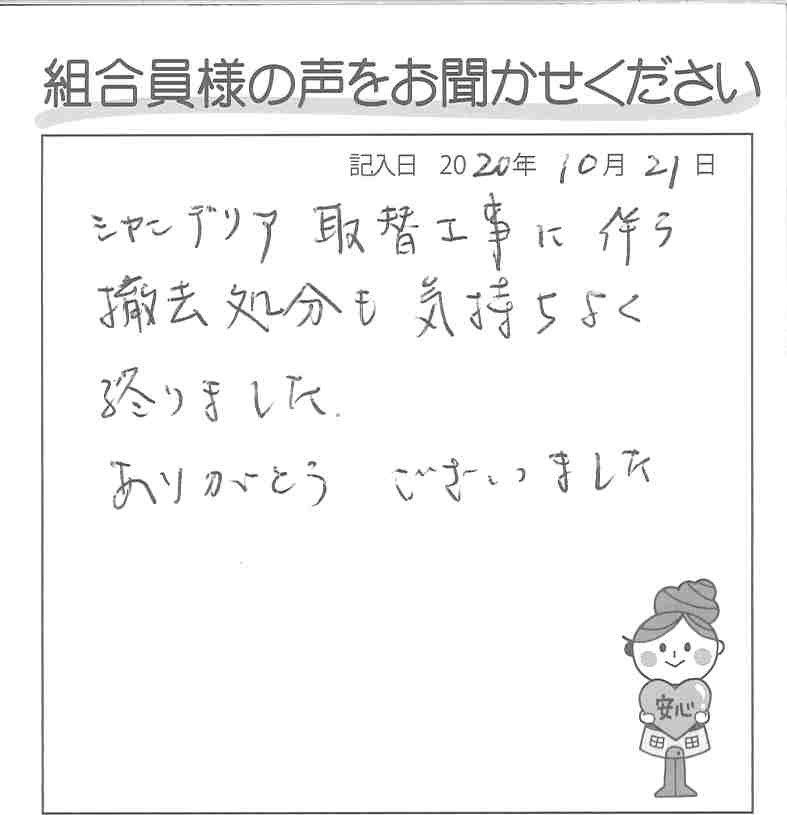 組合員様の声をお聞かせください
記入日 2020年 10月 21日
シャンデリア 取替工事に 伴う
撤去処分も 気持ちよく
終りました.
ありがとう ございました
安心